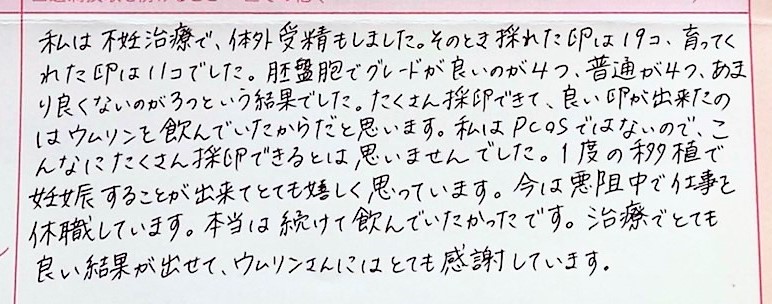 私は不妊治療で、体外受精もしました。そのとき採れた卵は19コ、育ってく
れた卵は11コでした。胚盤胞でグレードが良いのが4つ、普通が4つ、あま
り良くないのが3つという結果でした。たくさん採卵できて、良い卵が出来たの
はウムリンを飲んでいたからだと思います。私はPCOSではないので、こ
んなにたくさん採卵できるとは思いませんでした。1度の移植で
妊娠することが出来てとても嬉しく思っています。今は悪阻中で仕事を
休職しています。本当は続けて飲んでいたかったです。治療でとても
良い結果が出せて、ウムリンさんにはとても感謝しています。